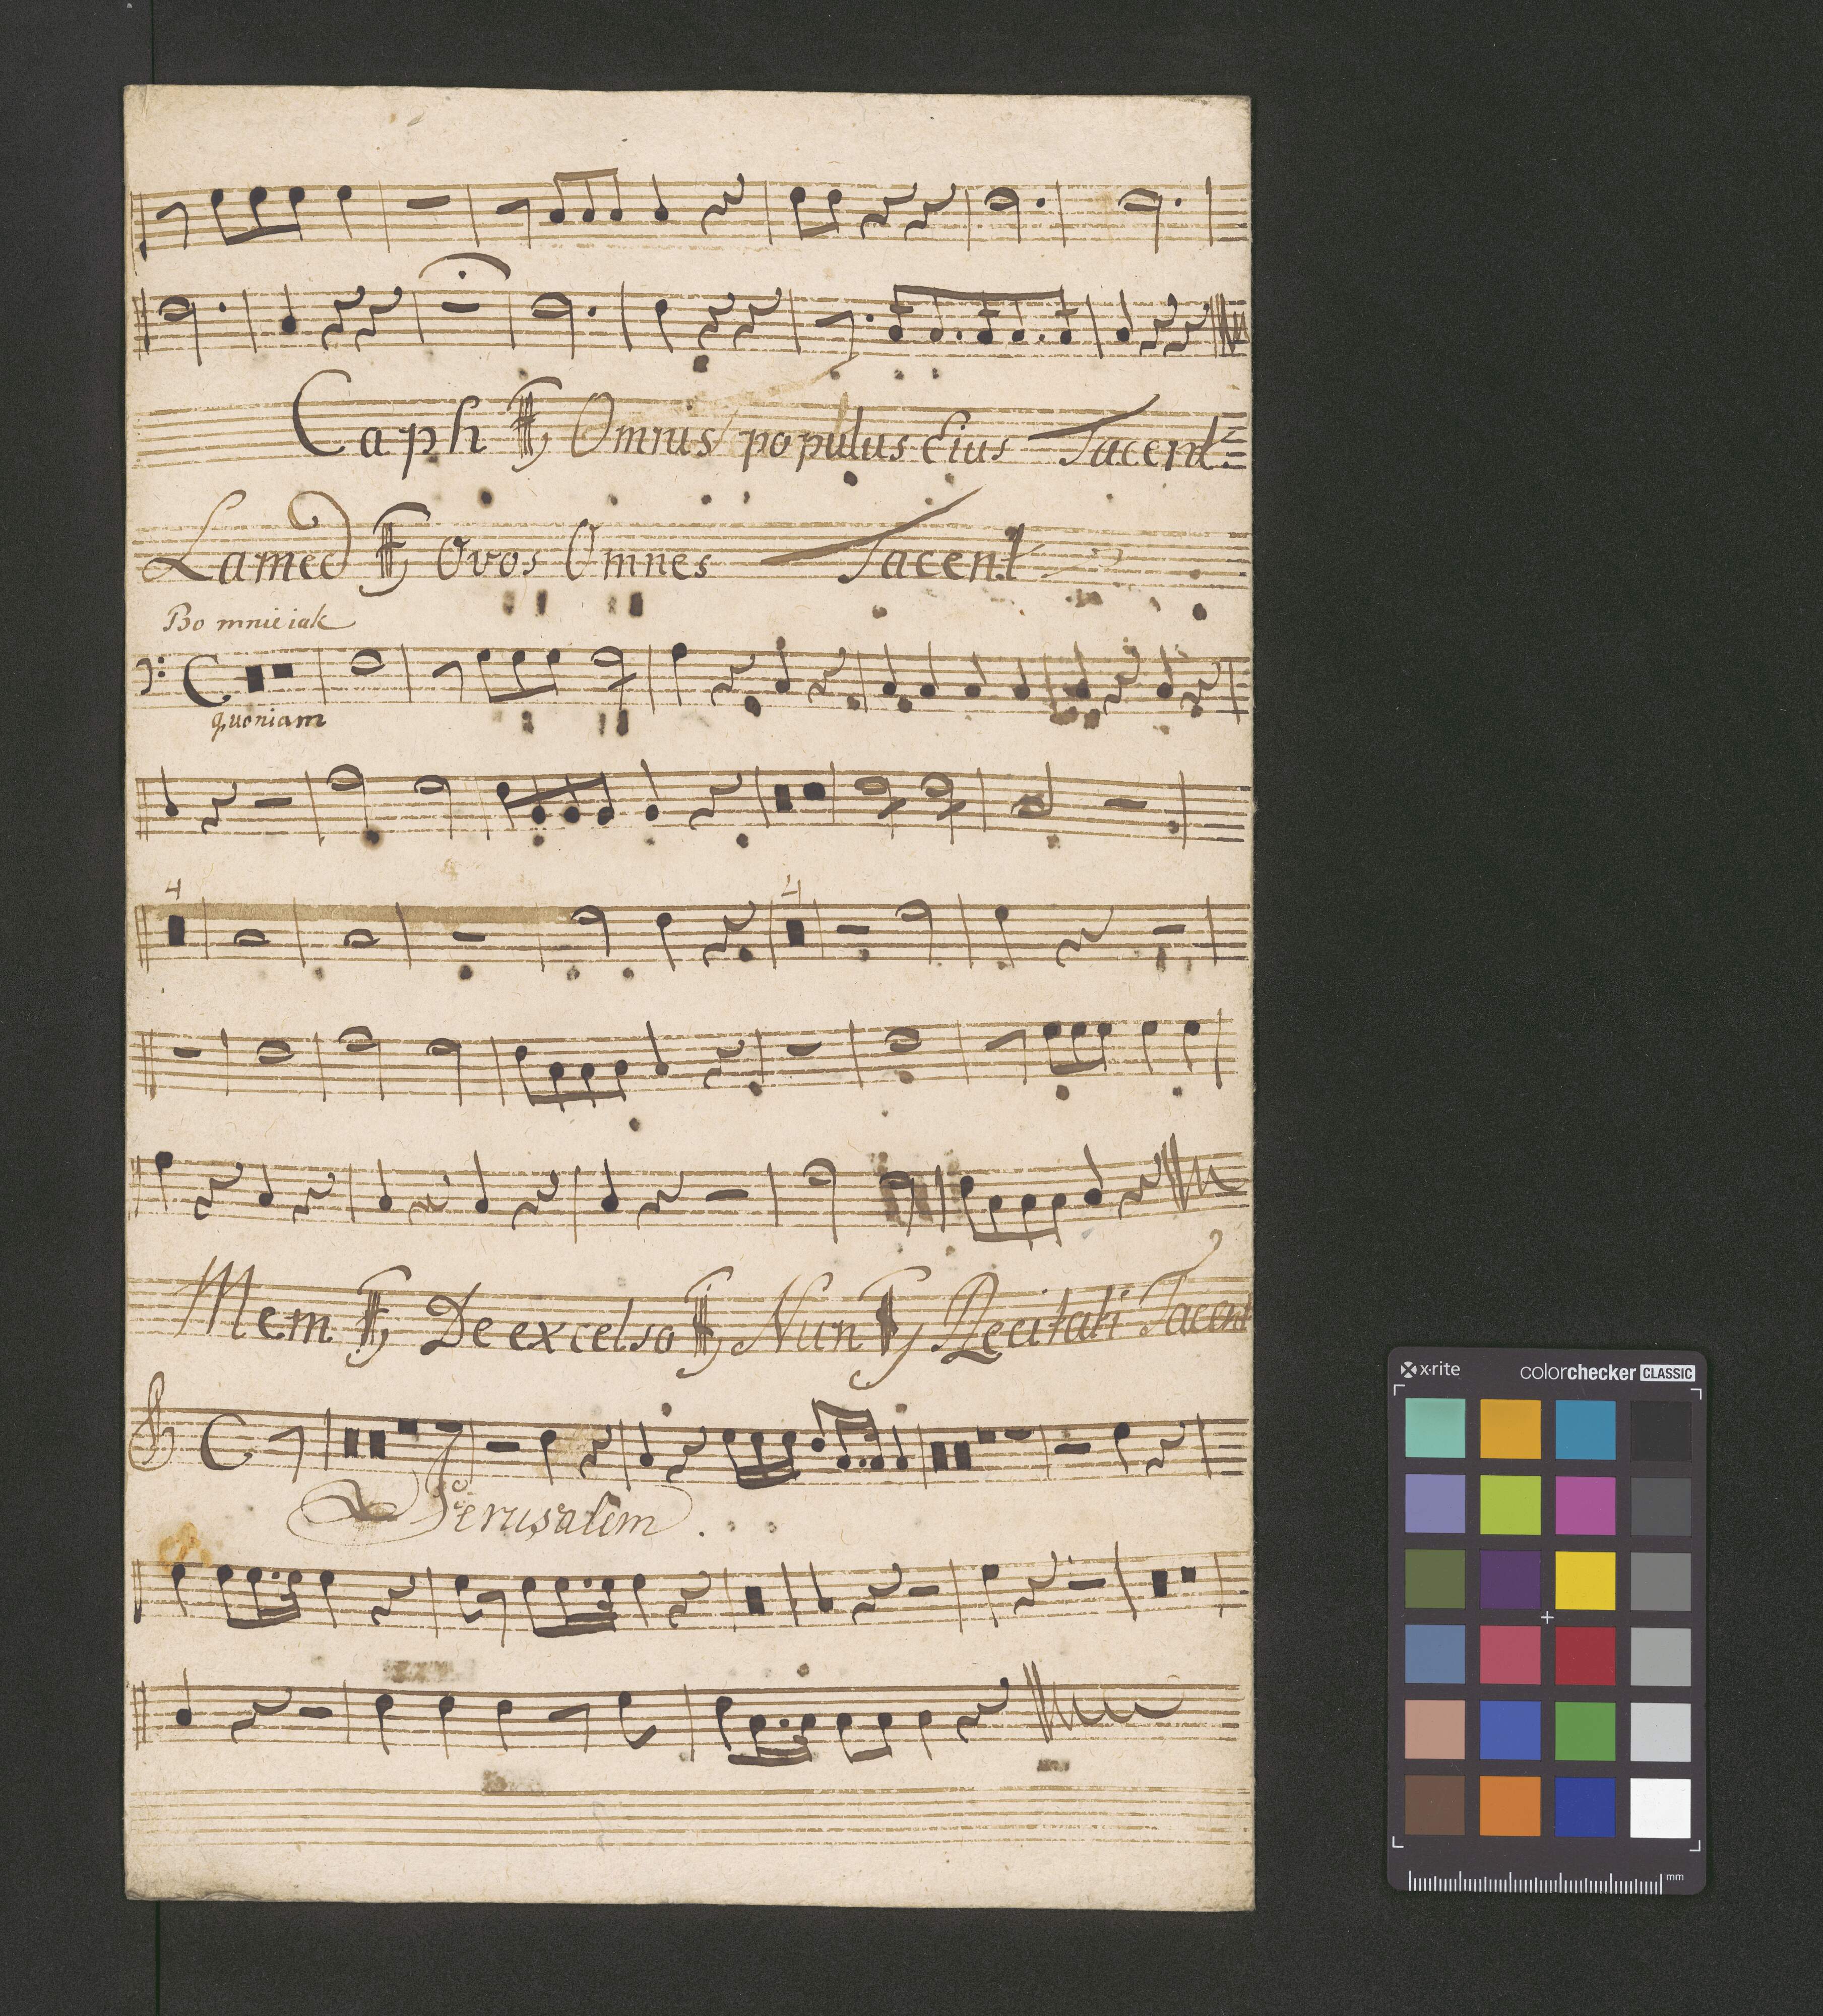 Caph Et Omnis populus Eius Tacent
Lamed Et O vos Omnes Tacent
Bo mnie iak
quoniam
4
4
Mem Et De excelso Et Nun Et Recitati Tacent
Jerusalem.
x·rite
colorchecker CLASSIC
mm